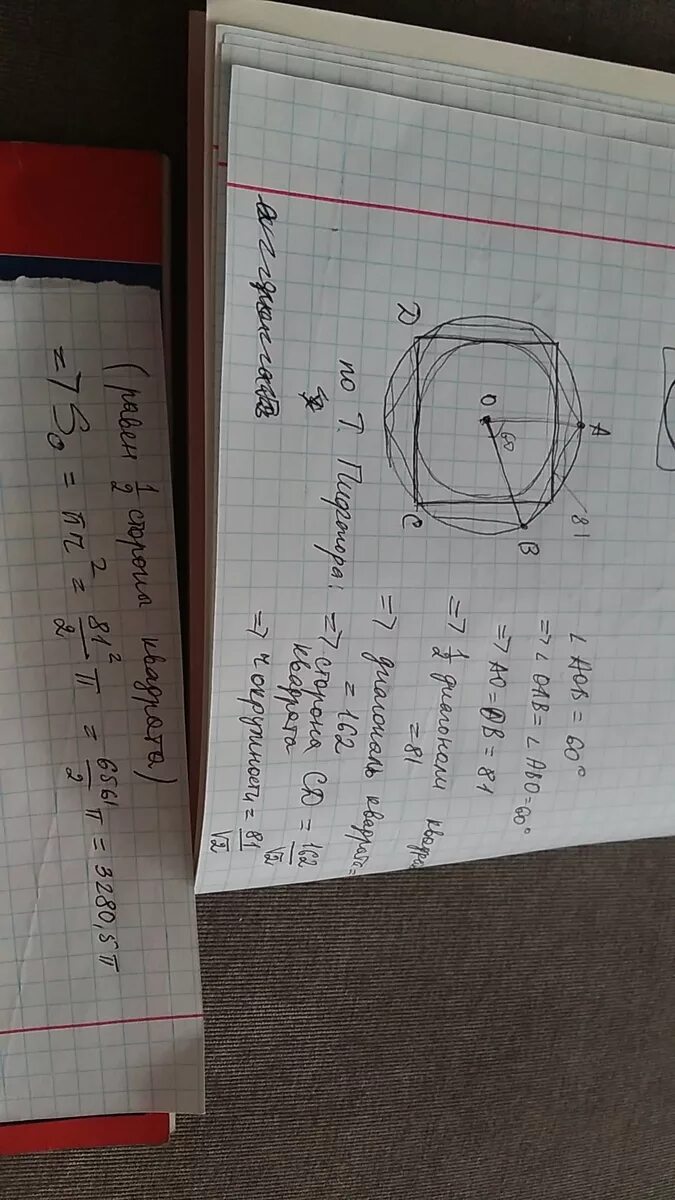 A
81
B
60
O
D
C
∠AOB = 60°
=> ∠OAB = ∠ABO = 60°
=> AO = OB = 81
=> 1/2 диагонали
= 81
=> диагональ квадрата =
= 162
по Т. Пифагора:
=> сторона CD = 162/√2
квадрата
=> r окружности = 81/√2
(равен 1/2 стороны квадрата)
=> S₀ = πr² = 81²/2 π = 6561/2 π = 3280,5 π